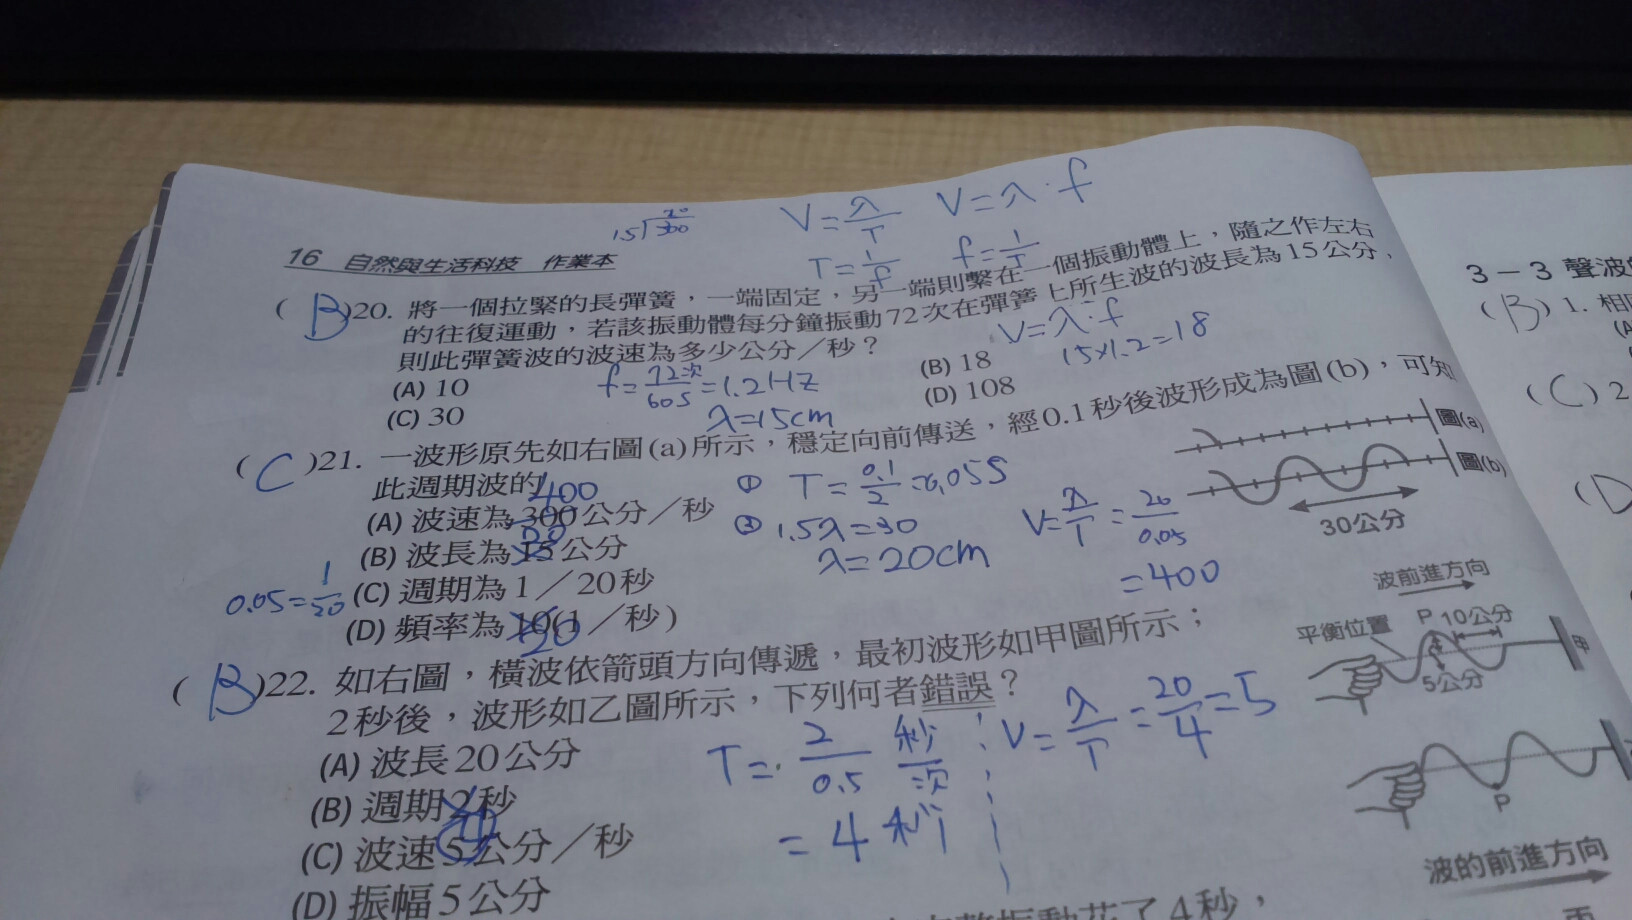 V=λ/T V=λ·f
15√300 20
T=1/f f=1/T
16 自然與生活科技 作業本
(B)20. 將一個拉緊的長彈簧，一端固定，另一端則繫在一個振動體上，隨之作左右
的往復運動，若該振動體每分鐘振動72次在彈簧上所生波的波長為15公分，
則此彈簧波的波速為多少公分／秒？
V=λ·f
15×1.2=18
(A) 10
(B) 18
(C) 30
(D) 108
f=72次/60s=1.2HZ
λ=15cm
(C)21. 一波形原先如右圖(a)所示，穩定向前傳送，經0.1秒後波形成為圖(b)，可知
此週期波的
(A) 波速為300公分／秒
400
(B) 波長為15公分
20
(C) 週期為1／20秒
0.05=1/20
(D) 頻率為10(1／秒)
20
① T=0.1/2=0.05S
② 1.5λ=30
λ=20cm
V=λ/T=20/0.05
=400
圖(a)
圖(b)
30公分
(B)22. 如右圖，橫波依箭頭方向傳遞，最初波形如甲圖所示；
2秒後，波形如乙圖所示，下列何者錯誤？
(A) 波長20公分
(B) 週期2秒
4
(C) 波速5公分／秒
(D) 振幅5公分
T=2/0.5 秒/次
=4秒
V=λ/T=20/4=5
波前進方向
平衡位置 P 10公分
5公分
甲
P
波的前進方向
振動花了4秒，
3－3 聲波
(B) 1. 相
(A
(C) 2
(D